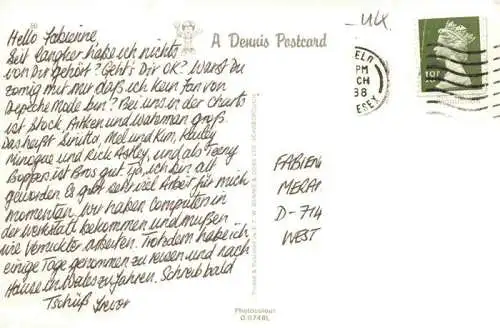 Hello Fabienne
Seit langher habe ich nichts
von Dir gehört? Geht's Dir OK? Warst Du
zornig mit mir daß ich kein Fan von
Depeche Mode bin? Bei uns in der Charts
ist Stock, Aitken und Waterman groß
Das heißt Sinitta, Mel und Kim, Kailey
Minogue und Rick Astley, und als Teeny
Boppers, ist Bros gut. Tja, ich bin alt
geworden. Es gibt sehr viel Arbeit für mich
momentan. Wir haben Computers in
der Werkstatt bekommen und mußen
wie Verrückter arbeiten. Trotzdem habe ich
einige Tage genommen zu reisen und nach
Hause in Wales zu fahren. Schreib bald
Tschüß Trevor
A Dennis Postcard
- UK.
PM
CH
88
FABIENN
MERAI
D-714
WEST
Photocolour
D.0748L